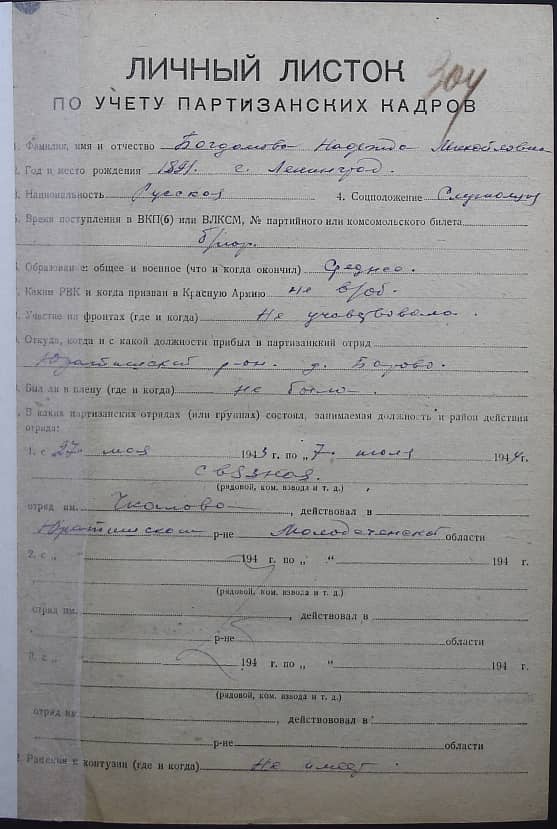 ЛИЧНЫЙ ЛИСТОК
304
ПО УЧЕТУ ПАРТИЗАНСКИХ КАДРОВ
1. Фамилия, имя и отчество Богданова Надежда Михайловна
2. Год и место рождения 1891 г. Ленинград.
3. Национальность Русская 4. Соцположение Служащая
5. Время поступления в ВКП(б) или ВЛКСМ, № партийного или комсомольского билета
б/пар.
Образование: общее и военное (что и когда окончил) Среднее.
Каким РВК и когда призван в Красную Армию не в/об.
Участие на фронтах (где и когда) Не участвовала.
Откуда, когда и с какой должности прибыл в партизанкий отряд
Юратишский р-он. д.
Был ли в плену (где и когда) не была.
В каких партизанских отрядах (или группах) состоял, занимаемая должность и район действия
отряда:
1. с 27 мая 1943 г. по „7" июля 1944 г.
Связная.
(рядовой, ком. взвода и т. д.)
отряд им. Чкалова, действовал в
Юратишском р-не Молодеченской области
2. с „ " 194 г. по „ " 194 г.
(рядовой, ком. взвода и т. д.)
отряд им. , действовал в
р-не области
3. с „ " 194 г. по „ " 194 г.
(рядовой, ком. взвода и т. д.)
отряд им. , действововал в
р-не области
Ранения и контузии (где и когда) Не имеет.